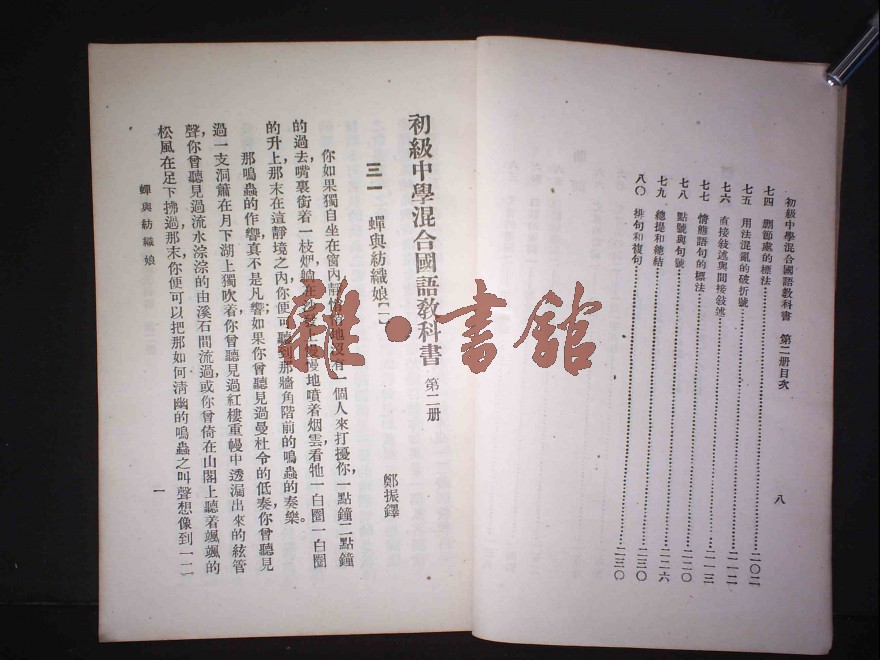 初級中學混合國語教科書 第二册目次 八
七四 删節處的標法 二〇二
七五 用法混亂的破折號
七六 直接敍述與間接敍述 二一二
七七 情態語句的標法 二一三
七八 點號與句號 二二〇
七九 總提和總結 二二六
八〇 排句和複句 二三〇
二三〇
初級中學混合國語教科書 第二册
三一 蟬與紡織娘〔一〕 鄭振鐸
你如果獨自坐在窗內靜悄悄地沒有一個人來打擾你,一點鐘二點鐘
的過去,嘴裏銜着一枝烟,躺在沙發上慢慢地噴着烟雲,看牠一白圈一白圈
的升上,那末在這靜境之內,你便可聽到那牆角階前的鳴蟲的奏樂。
那鳴蟲的作響,真不是凡響;如果你曾聽見過曼杜令的低奏,你曾聽見
過一支洞簫在月下湖上獨吹着,你曾聽見過紅樓重幔中透漏出來的絃管
聲,你曾聽見過流水淙淙的由溪石間流過,或你曾倚在山閣上聽着颯颯的
松風在足下拂過,那末,你便可以把那如何清幽的鳴蟲之叫聲想像到一二
蟬與紡織娘 一
雜·書舘